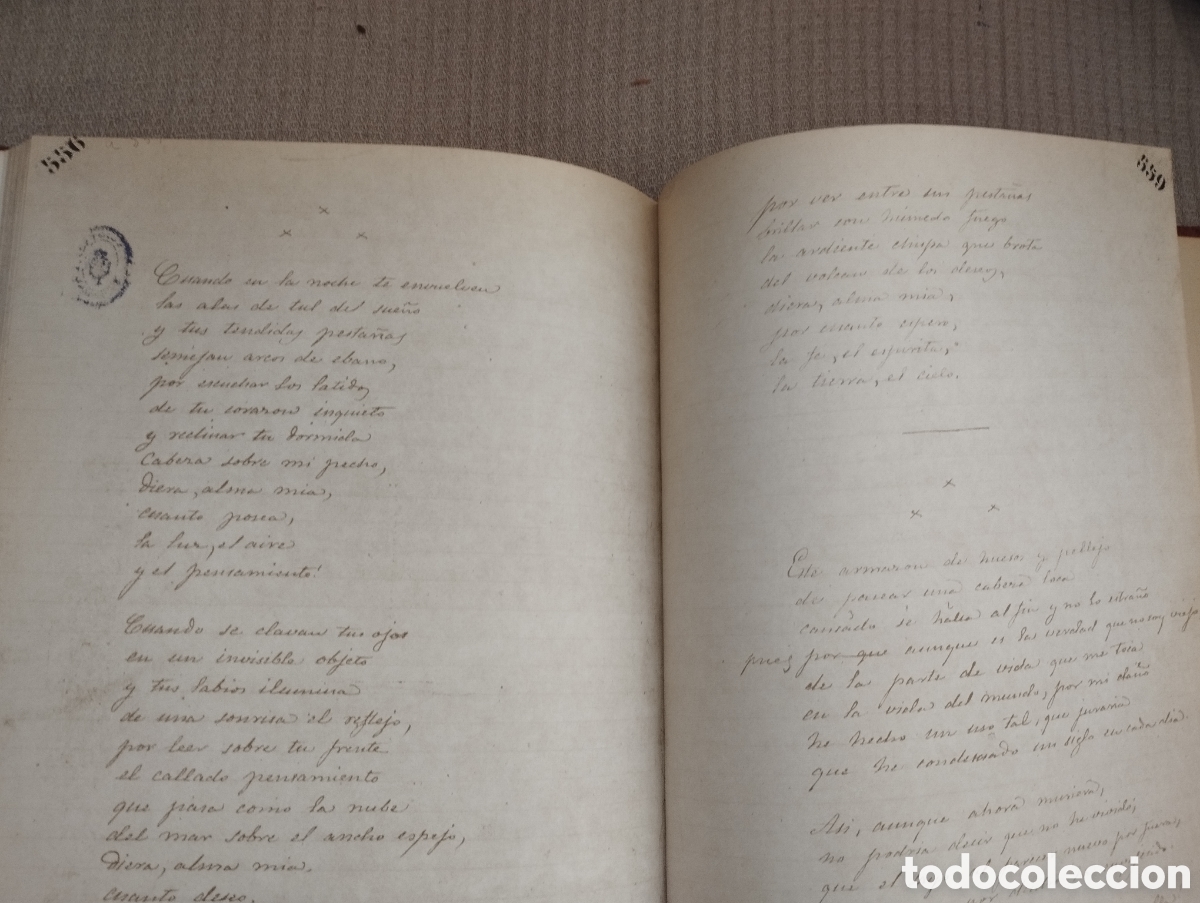 556
Cuando en la noche te envuelven
las alas de tul del sueño
y tus tendidas pestañas
semejan arcos de ebano,
por escuchar los latidos
de tu corazon inquieto
y reclinar tu dormida
cabeza sobre mi pecho,
diera, alma mia,
cuanto poseo,
la luz, el aire
y el pensamiento!
Cuando se clavan tus ojos
en un invisible objeto
y tus labios ilumina
de una sonrisa el reflejo,
por leer sobre tu frente
el callado pensamiento
que pasa como la nube
del mar sobre el ancho espejo,
diera, alma mia,
cuanto deseo,
559
por ver entre sus pestañas
brillar con húmedo fuego
la ardiente chispa que brota
del volcan de los deseos,
diera, alma mia,
por cuanto espero,
la fe, el espiritu,
la tierra, el cielo.
Este armazon de hueso y pellejo
de pasear una cabeza loca
cansado se halla al fin y no lo estraño
pues por que aunque es la verdad que no soy viejo
de la parte de vida que me toca
en la vida del mundo, por mi daño
he hecho un uso tal, que juraria
que he condensado un siglo en cada dia.
Asi, aunque ahora muriera,
no podria decir que no he vivido;
que el nuevo por fuera,
por
todocoleccion.com